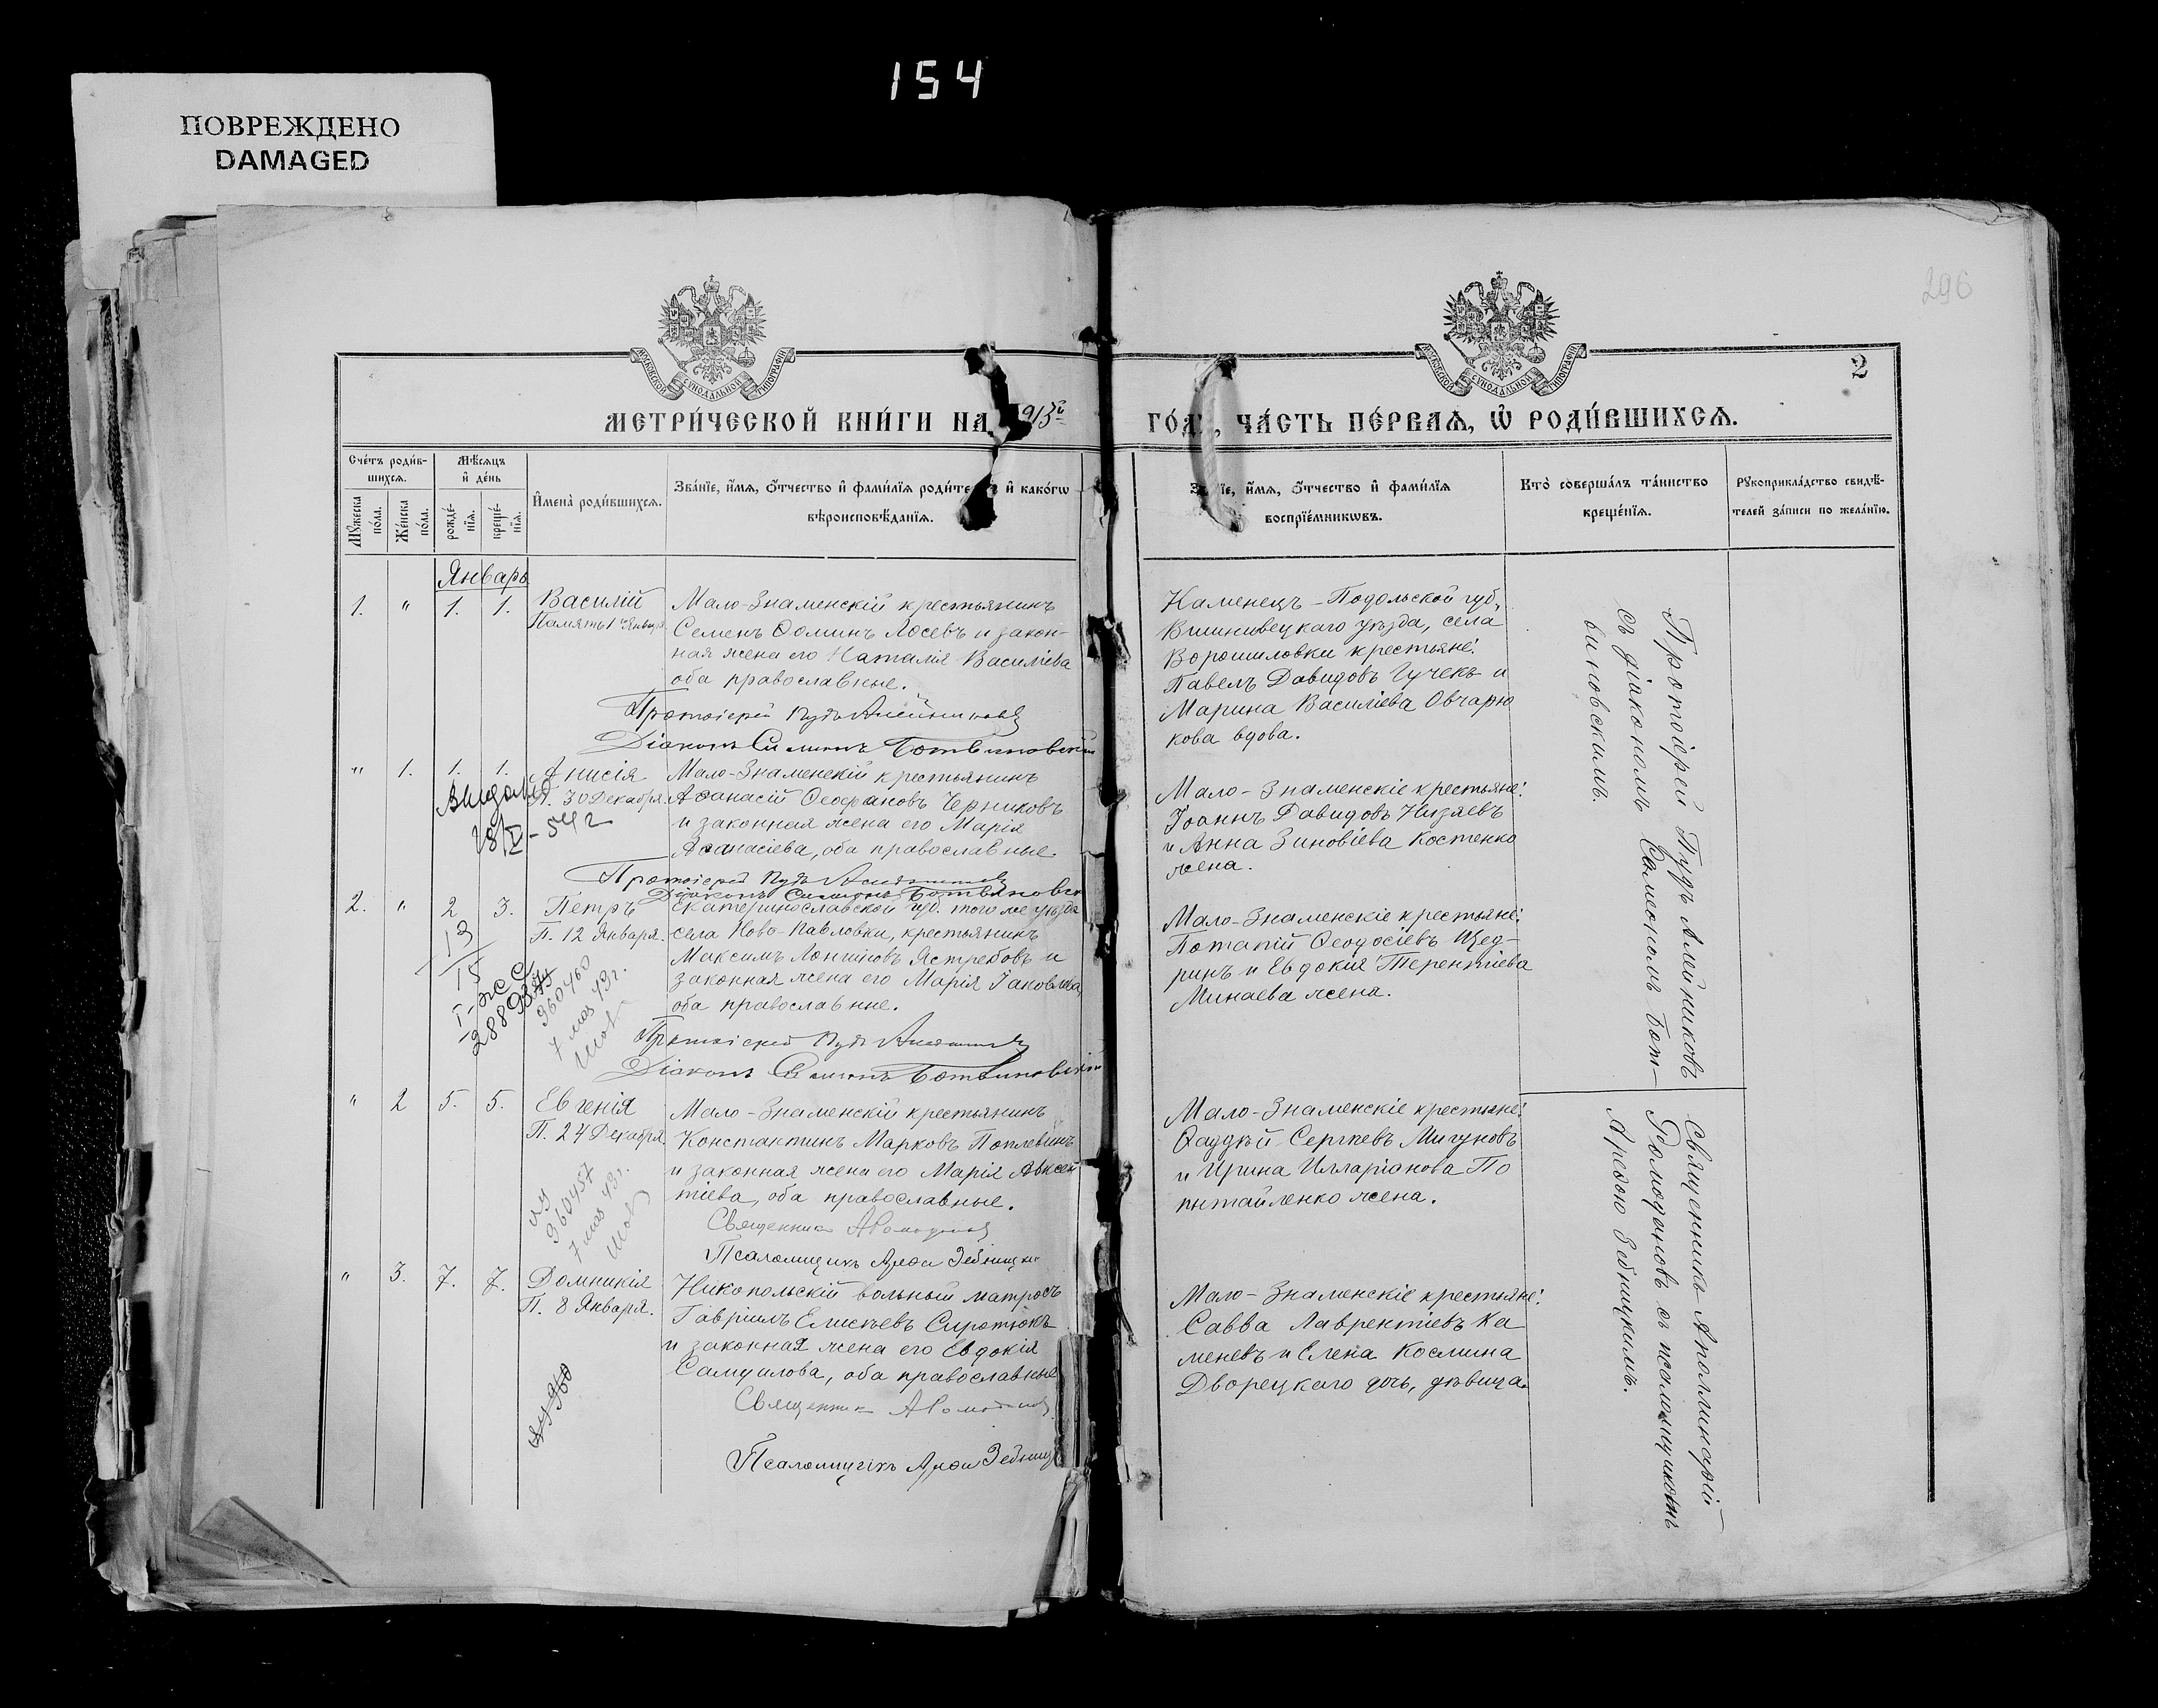 154
ПОВРЕЖДЕНО
DAMAGED
296
2
МОСКОВСКОЙ СѴНОДАЛЬНОЙ ТИПОГРАФІИ
МОСКОВСКОЙ СѴНОДАЛЬНОЙ ТИПОГРАФІИ
МЕТРИ́ЧЕСКОЙ КНИ́ГИ НА 913й
ГО́ДЪ, ЧА́СТЬ ПЕ́РВАѦ, Ѡ҆ РОДИ́ВШИХСѦ.
Сче́тъ роди́в-
шихсѧ.
Мѣ́сѧцъ
и҆ де́нь
Мꙋ́жеска
пола.
Же́нска
по́ла.
рожде́-
нїѧ.
креще́-
нїѧ.
И҆мена̀ роди́вшихсѧ.
Зва́нїе, и҆́мѧ, ѻ҆́тчество и҆ фами́лїѧ роди́те й и҆ како́гѡ
вѣроисповѣ́данїѧ.
Зв їе, и҆́мѧ, ѻ҆́тчество и҆ фами́лїѧ
воспрїе́мникѡвъ.
Кто̀ соверша́лъ та́инство
креще́нїѧ.
Рꙋкоприкла́дство свидѣ́-
телей за́писи по жела́нїю.
Январь
1. " 1. 1. Василій
Память 1 Января
Мало-Знаменскій крестьянинъ
Семенъ Ѳоминъ Лосевъ и закон-
ная жена его Наталія Василіева
оба православные.
Протоіерей Пудъ Алейниковъ
Діаконъ Симеонъ Ботвиновскій
Каменецъ-Подольской губ,
уѣзда, села
Ворошиловки крестьяне:
Павелъ Давидовъ Гучекъ и
Марина Василіева Овчарю
кова вдова.
Протіерей Пудъ Алейниковъ
съ діакономъ Симеономъ Бот-
виновскимъ.
" 1. 1. 1. Анисія
П. 30 Декабря.
Выдано
28/V-54 г
Мало-Знаменскій крестьянинъ
Аѳанасій Ѳеофановъ Черниковъ
и законная жена его Марія
Аѳанасіева, оба православные.
Протоіерей Пудъ Алейниковъ
Діаконъ Симеонъ Ботвиновскій
Мало-Знаменскіе крестьяне:
Іоаннъ Давидовъ Низяевъ
и Анна Зиновіева Костенко
жена.
2. " 2 3. Петръ
П. 12 Января.
13
15
960460
7 мая 43 г.
Екатеринославской губ. того же уѣзда
села Ново-Павловки, крестьянинъ
Максимъ Лонгиновъ Ястребовъ и
законная жена его Марія Іаковлева,
оба православные.
Протоіерей Пудъ Алейниковъ
Діаконъ Симеонъ Ботвиновскій
Мало-Знаменскіе крестьяне:
Потапій Ѳеодосіевъ Щед-
ринъ и Евдокія Терентіева
Минаева жена.
" 2 5. 5. Евгенія
П. 24 Декабря.
960457
7 мая 43 г.
Мало-Знаменскій крестьянинъ
Константинъ Марковъ Поплевинъ
и законная жена его Марія Авксен
тіева, оба православные.
Священникъ АРомодановъ
Псаломщикъ
Мало-Знаменскіе крестьяне:
Ѳаддѣй Сергѣевъ Мигуновъ
и Ирина Илларіонова По
пытайленко жена.
Священникъ Аполлинарій
Ромодановъ съ псаломщикомъ
" 3. 7. 7. Домникія
П. 8 Января.
Никопольскій вольный матросъ
Гавріилъ Елисѣевъ Сиротюкъ
и законная жена его Евдокія
Самуилова, оба православные
Священникъ АРомодановъ
Псаломщикъ
Мало-Знаменскіе крестьяне:
Савва Лаврентіевъ Ка
меневъ и Елена Космина
Дворецкаго дочь, дѣвица.